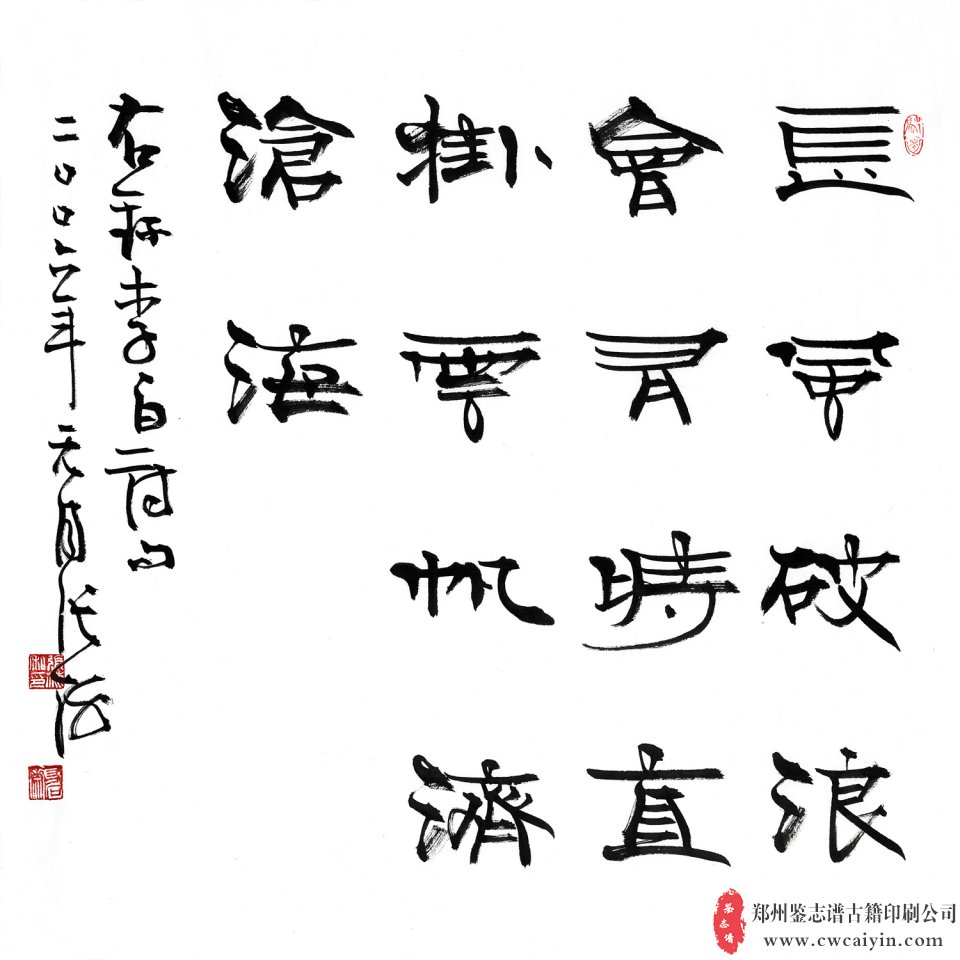 長風破浪
會有時直
掛雲帆濟
滄海
右錄李白詩句
二〇〇六年元月
鉴志谱
郑州鉴志谱古籍印刷公司
www.cwcaiyin.com